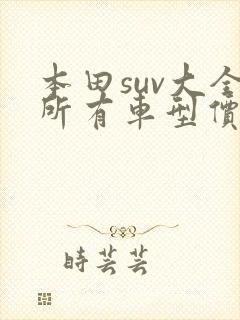 本田suv大全
所有車型價
時芸芸